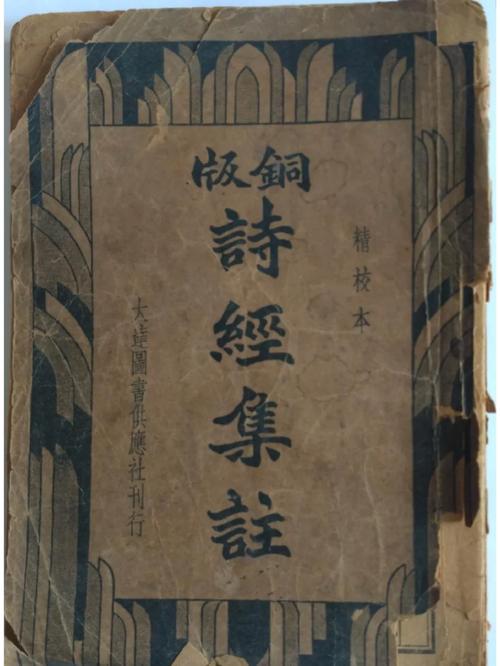 精校本
銅版
詩經集註
大達圖書供應社刊行